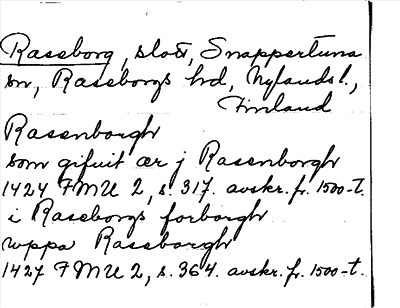 Raseborg, slott, Snappertuna
sn, Raseborgs hd, Nylands l.,
Finland
Rasenborgh
som gifuit ær j Rasenborgh
1424 FMU 2, s. 317. avskr. fr. 1500-t.
i Raseborgs forborgh
uppa Rasseborgh
1427 FMU 2, s. 364. avskr. fr. 1500-t.